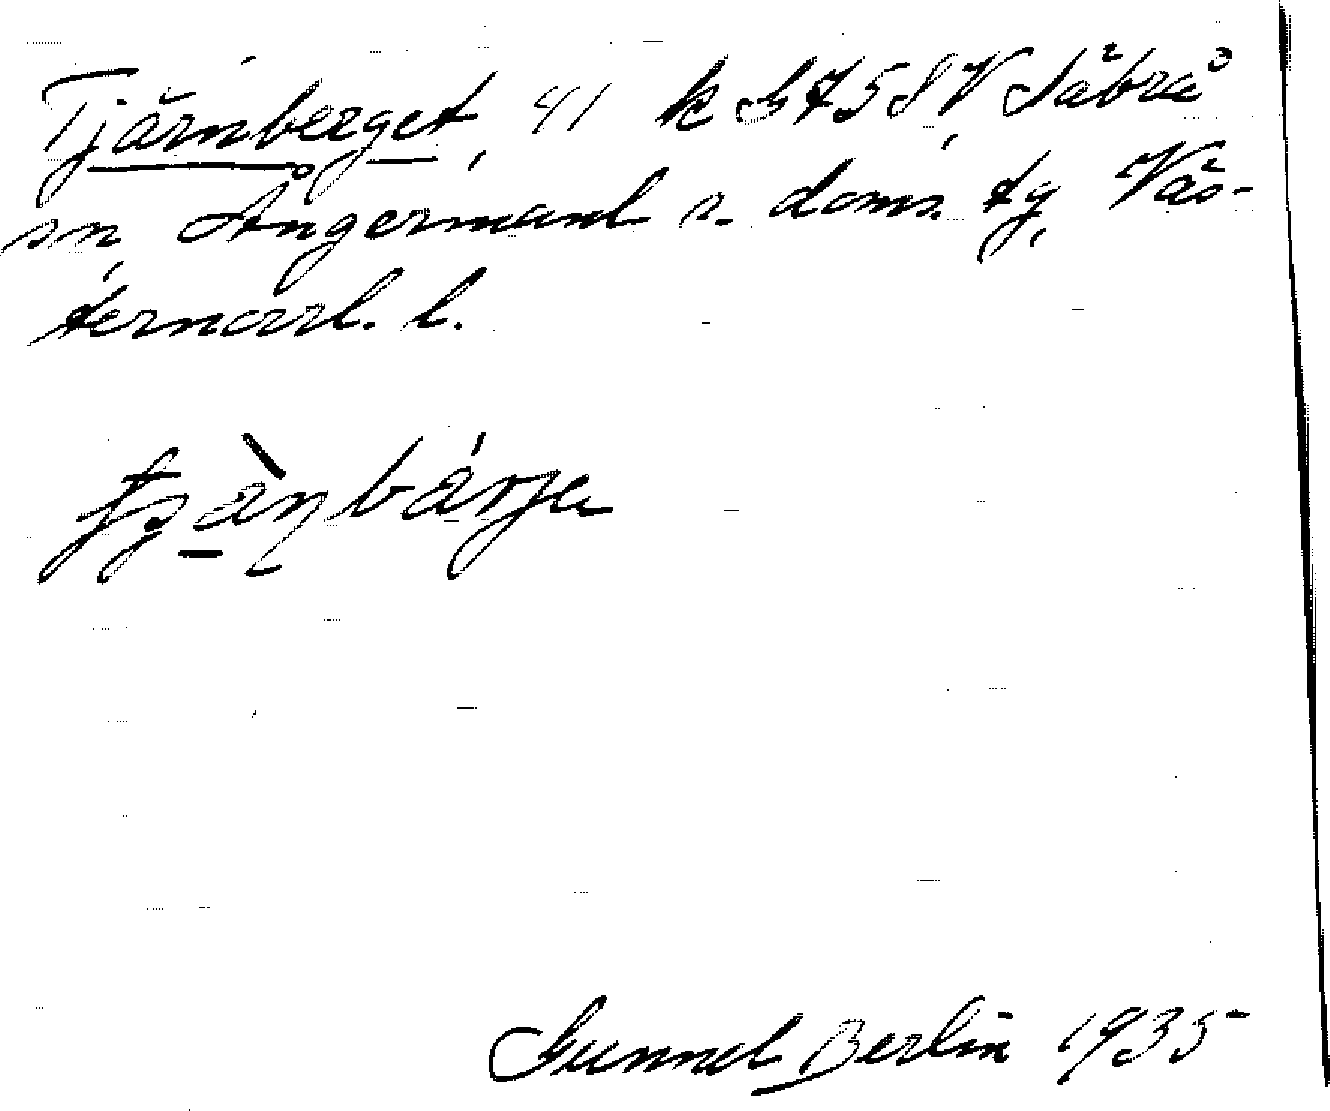 Tjärnberget, 41 k S 758, V Säbrå
sn, Ångermanl s. doms. tg, Väs-
ternorrl. l.
Gunnel Berlin 1935